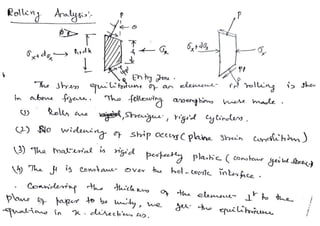 Rolling Analysis:-
P
θ
h+dh
h
σx+dσx
σx
P
σx+dσx
σx
P
Entry zone.
The stress equilibrium of an element in rolling is shown
in above figure. The following assumptions were made.
(1) Rolls are straight, rigid cylinders.
(2) No widening of strip occurs (plane strain condition)
(3) The material is rigid perfectly plastic (constant yield stress)
(4) The μ is constant over the rol-work interface.
Considering the thickness of the element ⊥r to the
plane of paper to be unity, we get the equilibrium
equations in x-direction as.